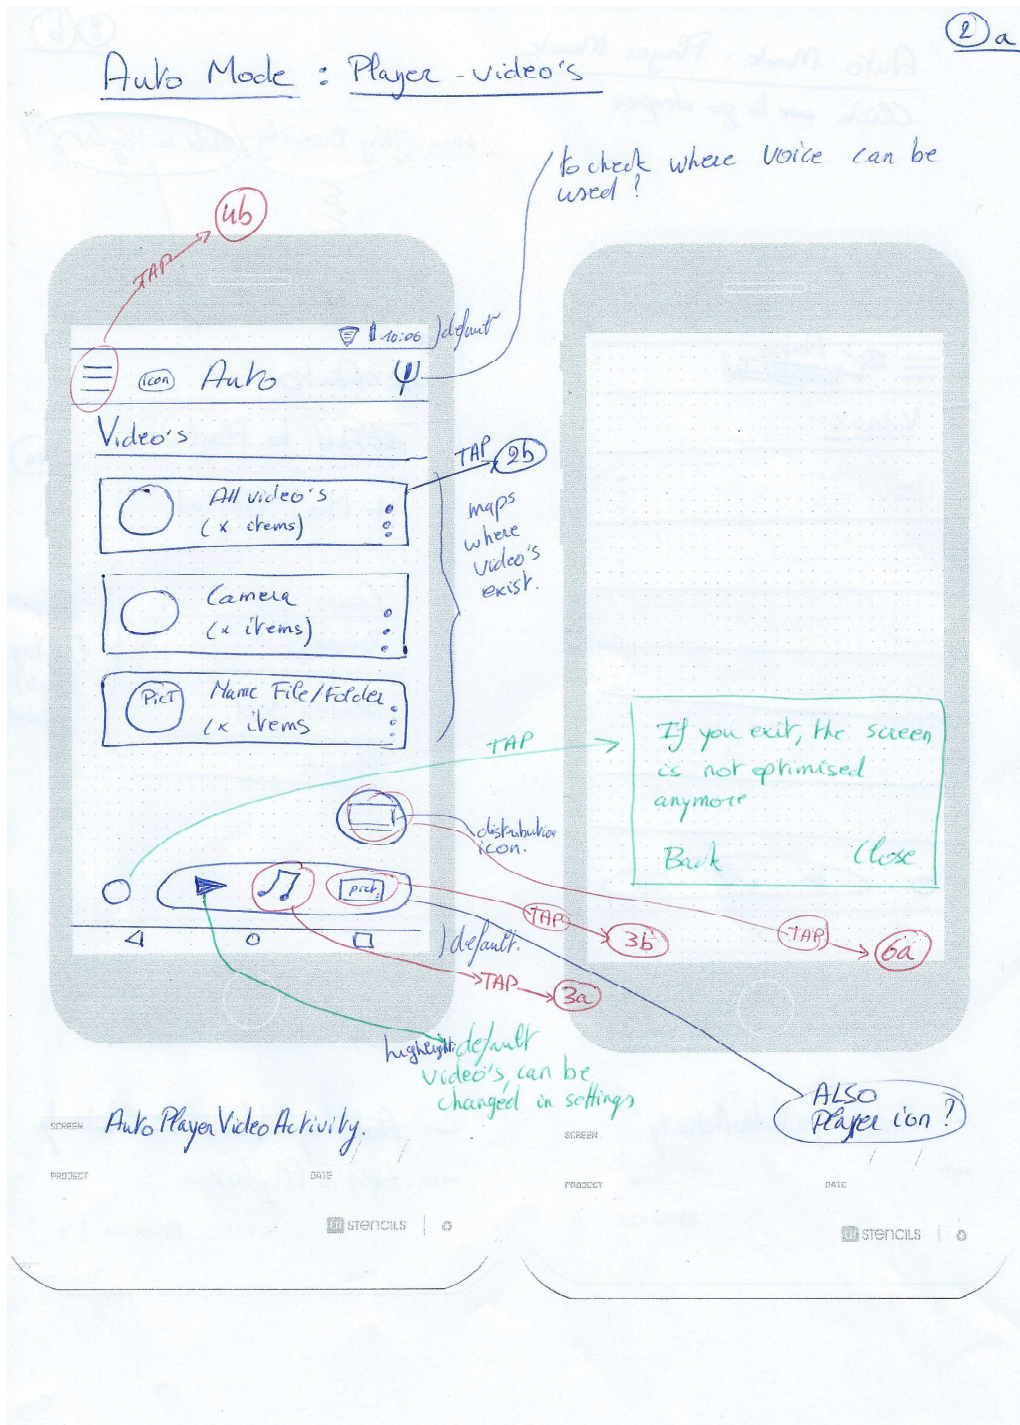 2a
Auto Mode : Player - video's
to check where voice can be
used?
4b
TAP
10:06
default
icon
Auto
Video's
TAP
2b
All video's
(x items)
maps
where
video's
exist.
Camera
(x items)
PICT
Name File/Folder
(x items
TAP
If you exit, the screen
is not optimised
anymore
Back
Close
distribution
icon.
pict.
TAP
3b
TAP
6a
default.
TAP
3a
highlight:
default
video's, can be
changed in settings
ALSO
Player icon?
SCREEN
Auto Player Video Activity.
SCREEN
PROJECT
DATE
PROJECT
DATE
UI STENCILS
UI STENCILS